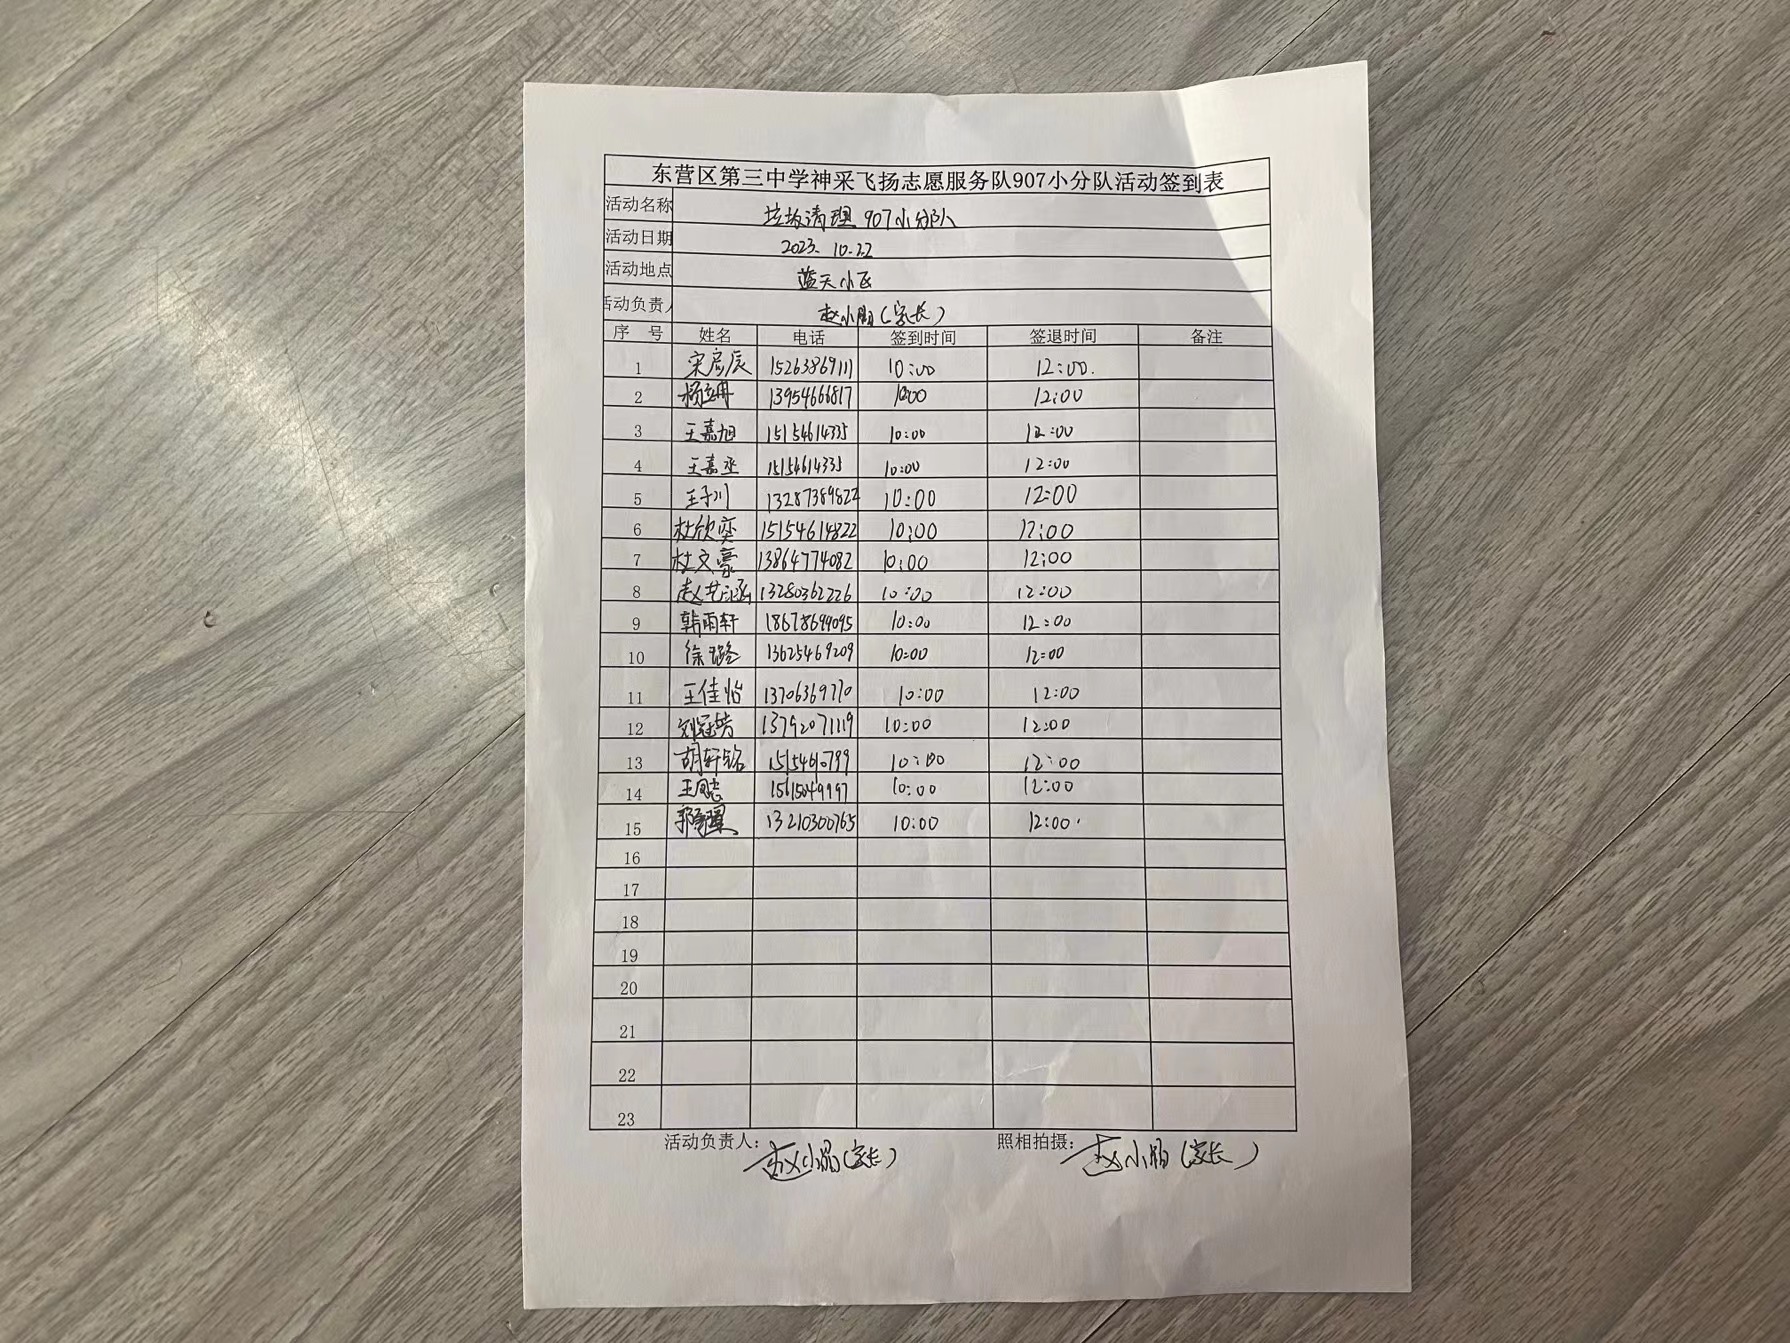 东营区第三中学神采飞扬志愿服务队907小分队活动签到表
活动名称 垃圾清理 907小分队
活动日期 2023. 10.22
活动地点 蓝天小区
活动负责人 赵小朋（家长）
序 号 姓名 电话 签到时间 签退时间 备注
1 宋彦辰 15263869111 10:00 12:00.
2 13954666817 10:00 12:00
3 王嘉旭 15154614335 10:00 12:00
4 王嘉丞 15154614335 10:00 12:00
5 王子川 13287389822 10:00 12:00
6 杜欣奕 15154614822 10:00 12:00
7 杜文豪 13864774082 10:00 12:00
8 赵艺涵 13280362226 10:00 12:00
9 韩雨轩 18678699095 10:00 12:00
10 徐璐 13625469209 10:00 12:00
11 王佳怡 13706369770 10:00 12:00
12 13792071119 10:00 12:00
13 胡轩铭 10:00 12:00
14 10:00 12:00
15 13210300765 10:00 12:00
16
17
18
19
20
21
22
23
活动负责人： 赵小朋（家长） 照相拍摄： 赵小朋（家长）